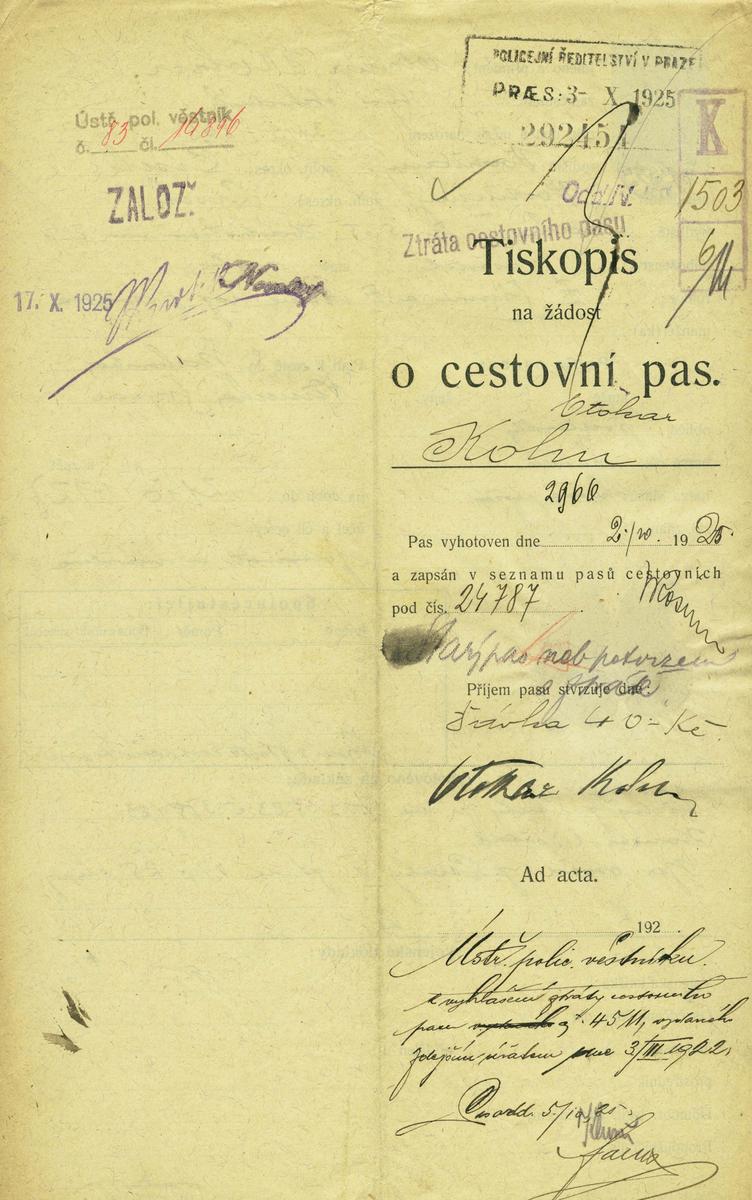 Ústř. pol. věstník
č. 83 čl. 14896
ZALOŽ.
17. X. 1925
POLICEJNÍ ŘEDITELSTVÍ V PRAZE
PRÆS: 3- X 1925
292454
K
1503
Odd. IV.
Ztráta cestovního pasu
Tiskopis
na žádost
o cestovní pas.
Otokar
Kohn
2966
Pas vyhotoven dne 2./10. 1925.
a zapsán v seznamu pasů cestovních
pod čís. 24787
Starý pas neb potvrzení
Příjem pasu stvrzuje dne:
Dávka 40- Kč.
Otokar Kohn
Ad acta.
192
Ústř. polic. věstníku.
k vyhlášení ztráty cestovního
pasu č. 4511, vydaného
zdejším úřadem dne 3/III 1922.
5./10 25.